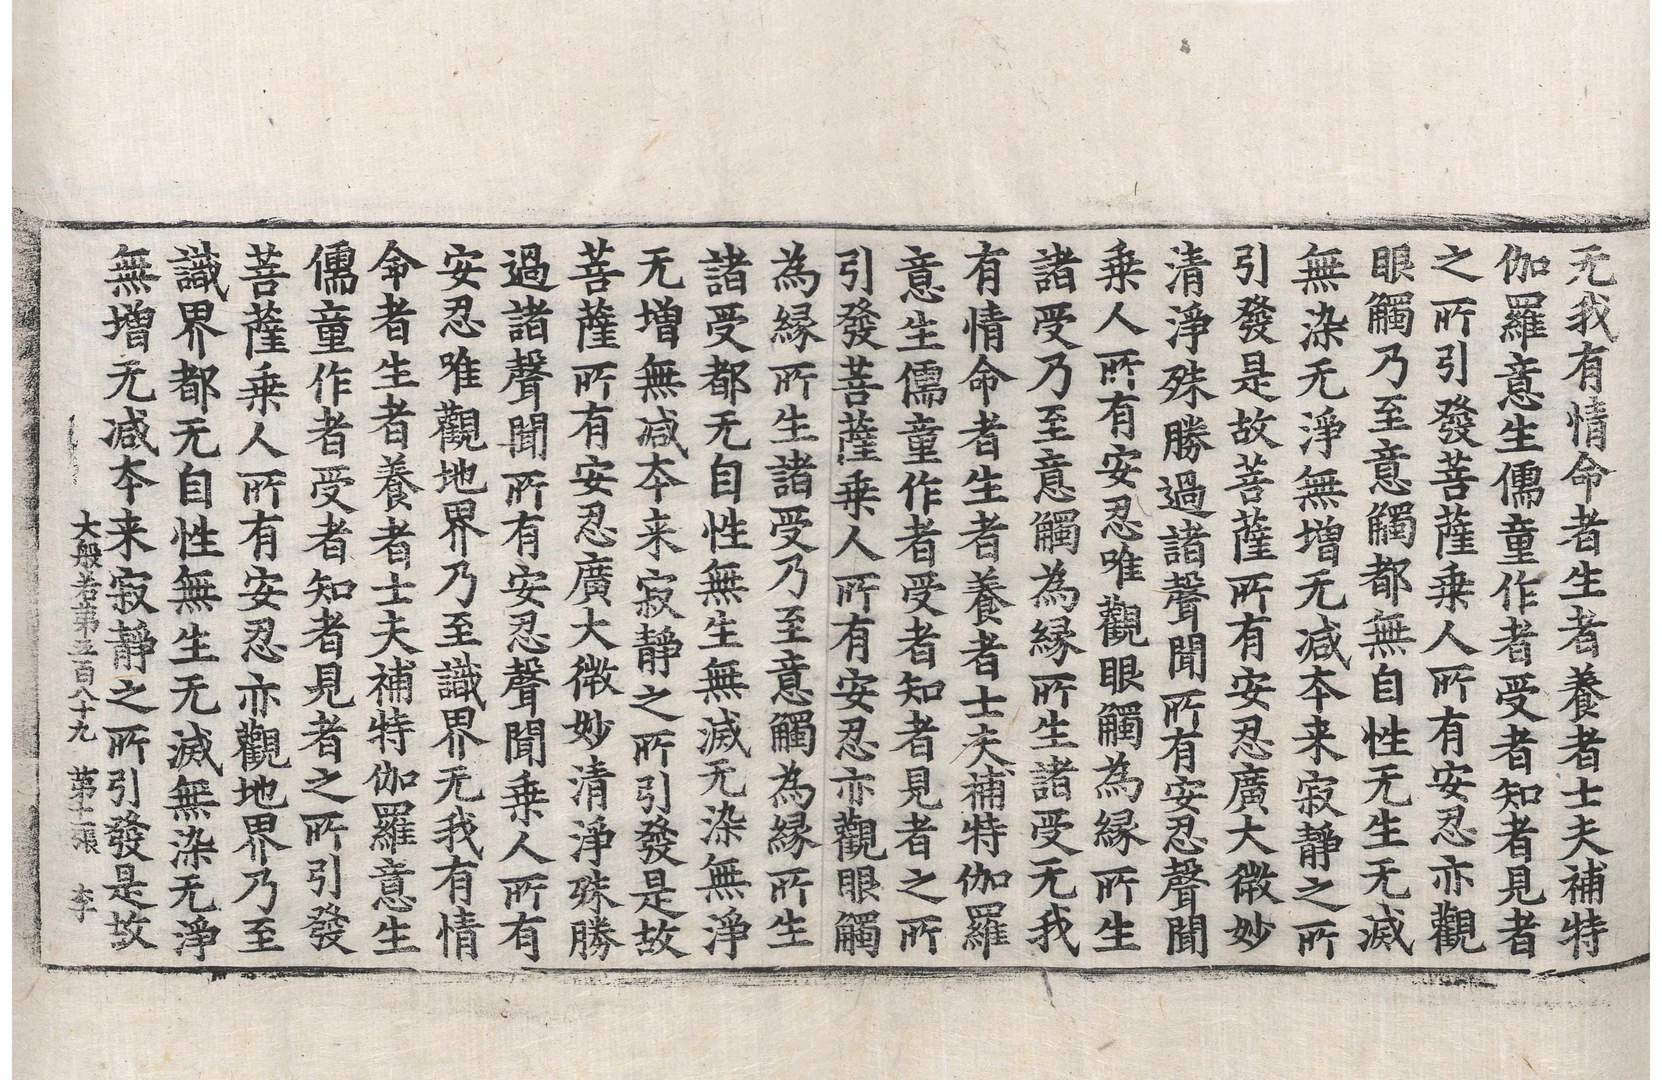 无我有情命者生者養者士夫補特
伽羅意生儒童作者受者知者見者
之所引發菩薩乗人所有安忍亦觀
眼觸乃至意觸都無自性无生无滅
無染无淨無增无减本来寂靜之所
引發是故菩薩所有安忍廣大微妙
清淨殊勝過諸聲聞所有安忍聲聞
乗人所有安忍唯觀眼觸為縁所生
諸受乃至意觸為縁所生諸受无我
有情命者生者養者士夫補特伽羅
意生儒童作者受者知者見者之所
引發菩薩乗人所有安忍亦觀眼觸
為縁所生諸受乃至意觸為縁所生
諸受都无自性無生無滅无染無淨
无增無减本来寂靜之所引發是故
菩薩所有安忍廣大微妙清淨殊勝
過諸聲聞所有安忍聲聞乗人所有
安忍唯觀地界乃至識界无我有情
命者生者養者士夫補特伽羅意生
儒童作者受者知者見者之所引發
菩薩乗人所有安忍亦觀地界乃至
識界都无自性無生无滅無染无淨
無增无减本来寂靜之所引發是故
大般若第五百八十九 第十一張 李